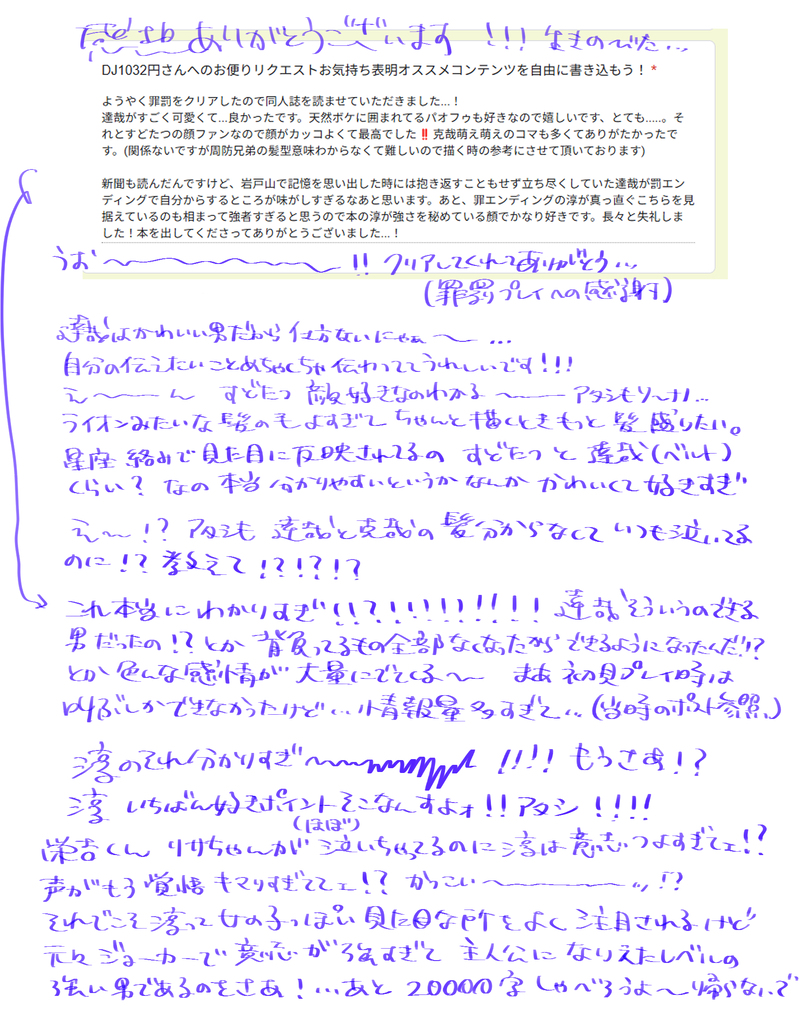 感想ありがとうございます!!!生きのびた...
DJ1032円さんへのお便りリクエストお気持ち表明オススメコンテンツを自由に書き込もう! *
ようやく罪罰をクリアしたので同人誌を読ませていただきました...!
達哉がすごく可愛くて...良かったです。天然ボケに囲まれてるパオフゥも好きなので嬉しいです、とても.....。そ
れとすどたつの顔ファンなので顔がカッコよくて最高でした‼克哉萌え萌えのコマも多くてありがたかったで
す。(関係ないですが周防兄弟の髪型意味わからなくて難しいので描く時の参考にさせて頂いております)
新聞も読んだんですけど、岩戸山で記憶を思い出した時には抱き返すこともせず立ち尽くしていた達哉が罰エン
ディングで自分からするところが味がしすぎるなあと思います。あと、罪エンディングの淳が真っ直ぐこちらを見
据えているのも相まって強者すぎると思うので本の淳が強さを秘めている顔でかなり好きです。長々と失礼しま
した!本を出してくださってありがとうございました...!
うお〜〜〜〜〜〜!! クリアしてくれてありがとう...
(罪罰プレイへの感謝)
達哉はかわいい男だから仕方ないにゃぁ〜...
自分の伝えたいことめちゃくちゃ伝わっててうれしいです!!!
え〜〜ん すどたつ顔好きなのわかる〜〜 アタシもソーナノ...
ライオンみたいな髪の毛よすぎて ちゃんと描くときもっと髪盛りたい。
星座絡みで見た目に反映されてるの すどたつと達哉(ベルト)
くらい?なの本当分かりやすいというかなんか かわいくて好きすぎ
え〜!?アタシも 達哉と克哉の髪分からなくていつも泣いてる
のに!?教えて!?!?!?
これ本当にわかりすぎ!!?!!!!!!! 達哉そういうのできる
男だったの!?とか 背負ってるもの全部なくなったからできるようになったんだ!?
とか色んな感情が大量にでてくる〜〜 まあ初見プレイ時は
叫ぶしかできなかったけど...情報量多すぎて...(当時のポスト参照)
淳のそれ分かりすぎ〜〜〜 !!!! もうさあ!?
淳 いちばん好きポイントそこなんすよォ!!アタシ!!!!
(ほぼ)
栄吉くん リサちゃんが泣いちゃってるのに淳は意志つよすぎてェ!?
声がもう覚悟キマりすぎててェ!? かっこい〜〜〜〜ッ!?
それでこそ淳って女の子っぽい見た目な所をよく注目されるけど
元々ジョーカーで意志が強すぎて主人公になりえたレベルの
強い男であるのをさあ!...あと20000字しゃべろうよ〜帰らないで